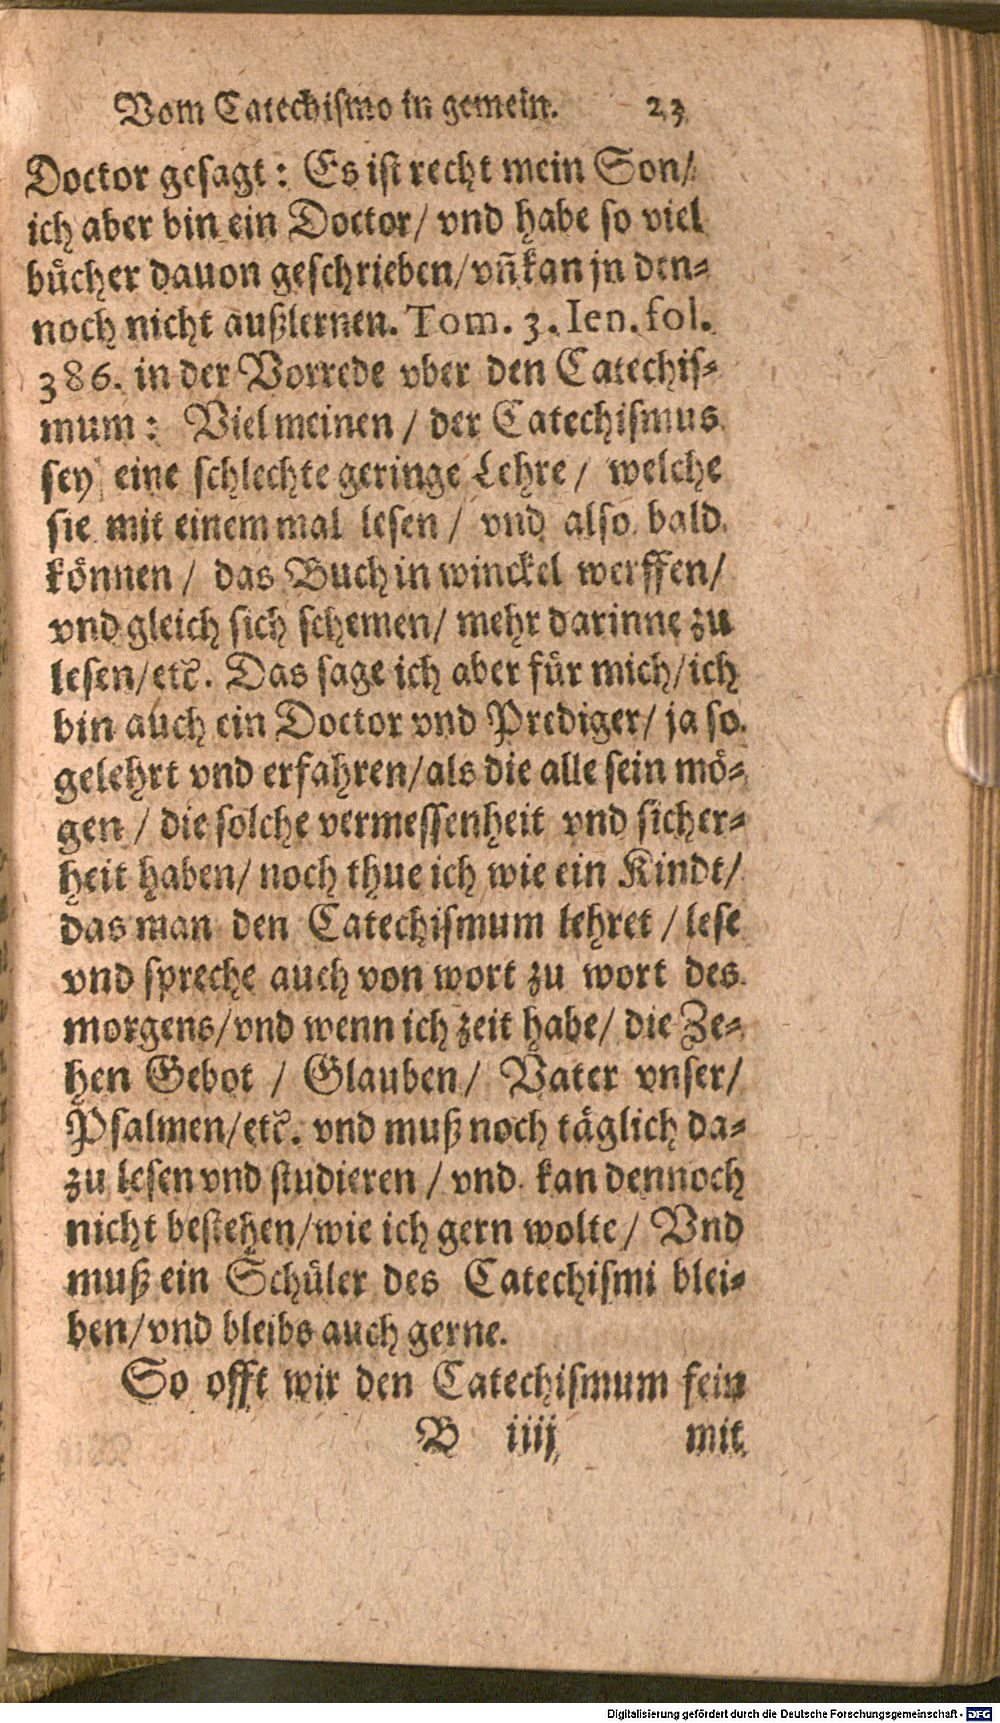 Vom Catechismo in gemein. 23
Doctor gesagt: Es ist recht mein Son/
ich aber bin ein Doctor/ vnd habe so viel
bücher dauon geschrieben/vn̄ kan jn den-
noch nicht außlernen. Tom. 3. Ien. fol.
386. in der Vorrede vber den Catechis-
mum: Viel meinen / der Catechismus
sey eine schlechte geringe Lehre / welche
sie mit einem mal lesen / vnd also bald
können / das Buch in winckel werffen/
vnd gleich sich schemen/ mehr darinne zu
lesen/etc. Das sage ich aber für mich/ich
bin auch ein Doctor vnd Prediger/ ja so
gelehrt vnd erfahren/als die alle sein mö-
gen / die solche vermessenheit vnd sicher-
heit haben/ noch thue ich wie ein Kindt/
das man den Catechismum lehret / lese
vnd spreche auch von wort zu wort des
morgens/vnd wenn ich zeit habe/ die Ze-
hen Gebot / Glauben/ Vater vnser/
Psalmen/etc. vnd muß noch täglich da-
zu lesen vnd studieren / vnd kan dennoch
nicht bestehen/wie ich gern wolte/ Vnd
muß ein Schüler des Catechismi blei-
ben/vnd bleibs auch gerne.
So offt wir den Catechismum fein
B iiij mit
Digitalisierung gefördert durch die Deutsche Forschungsgemeinschaft - DFG